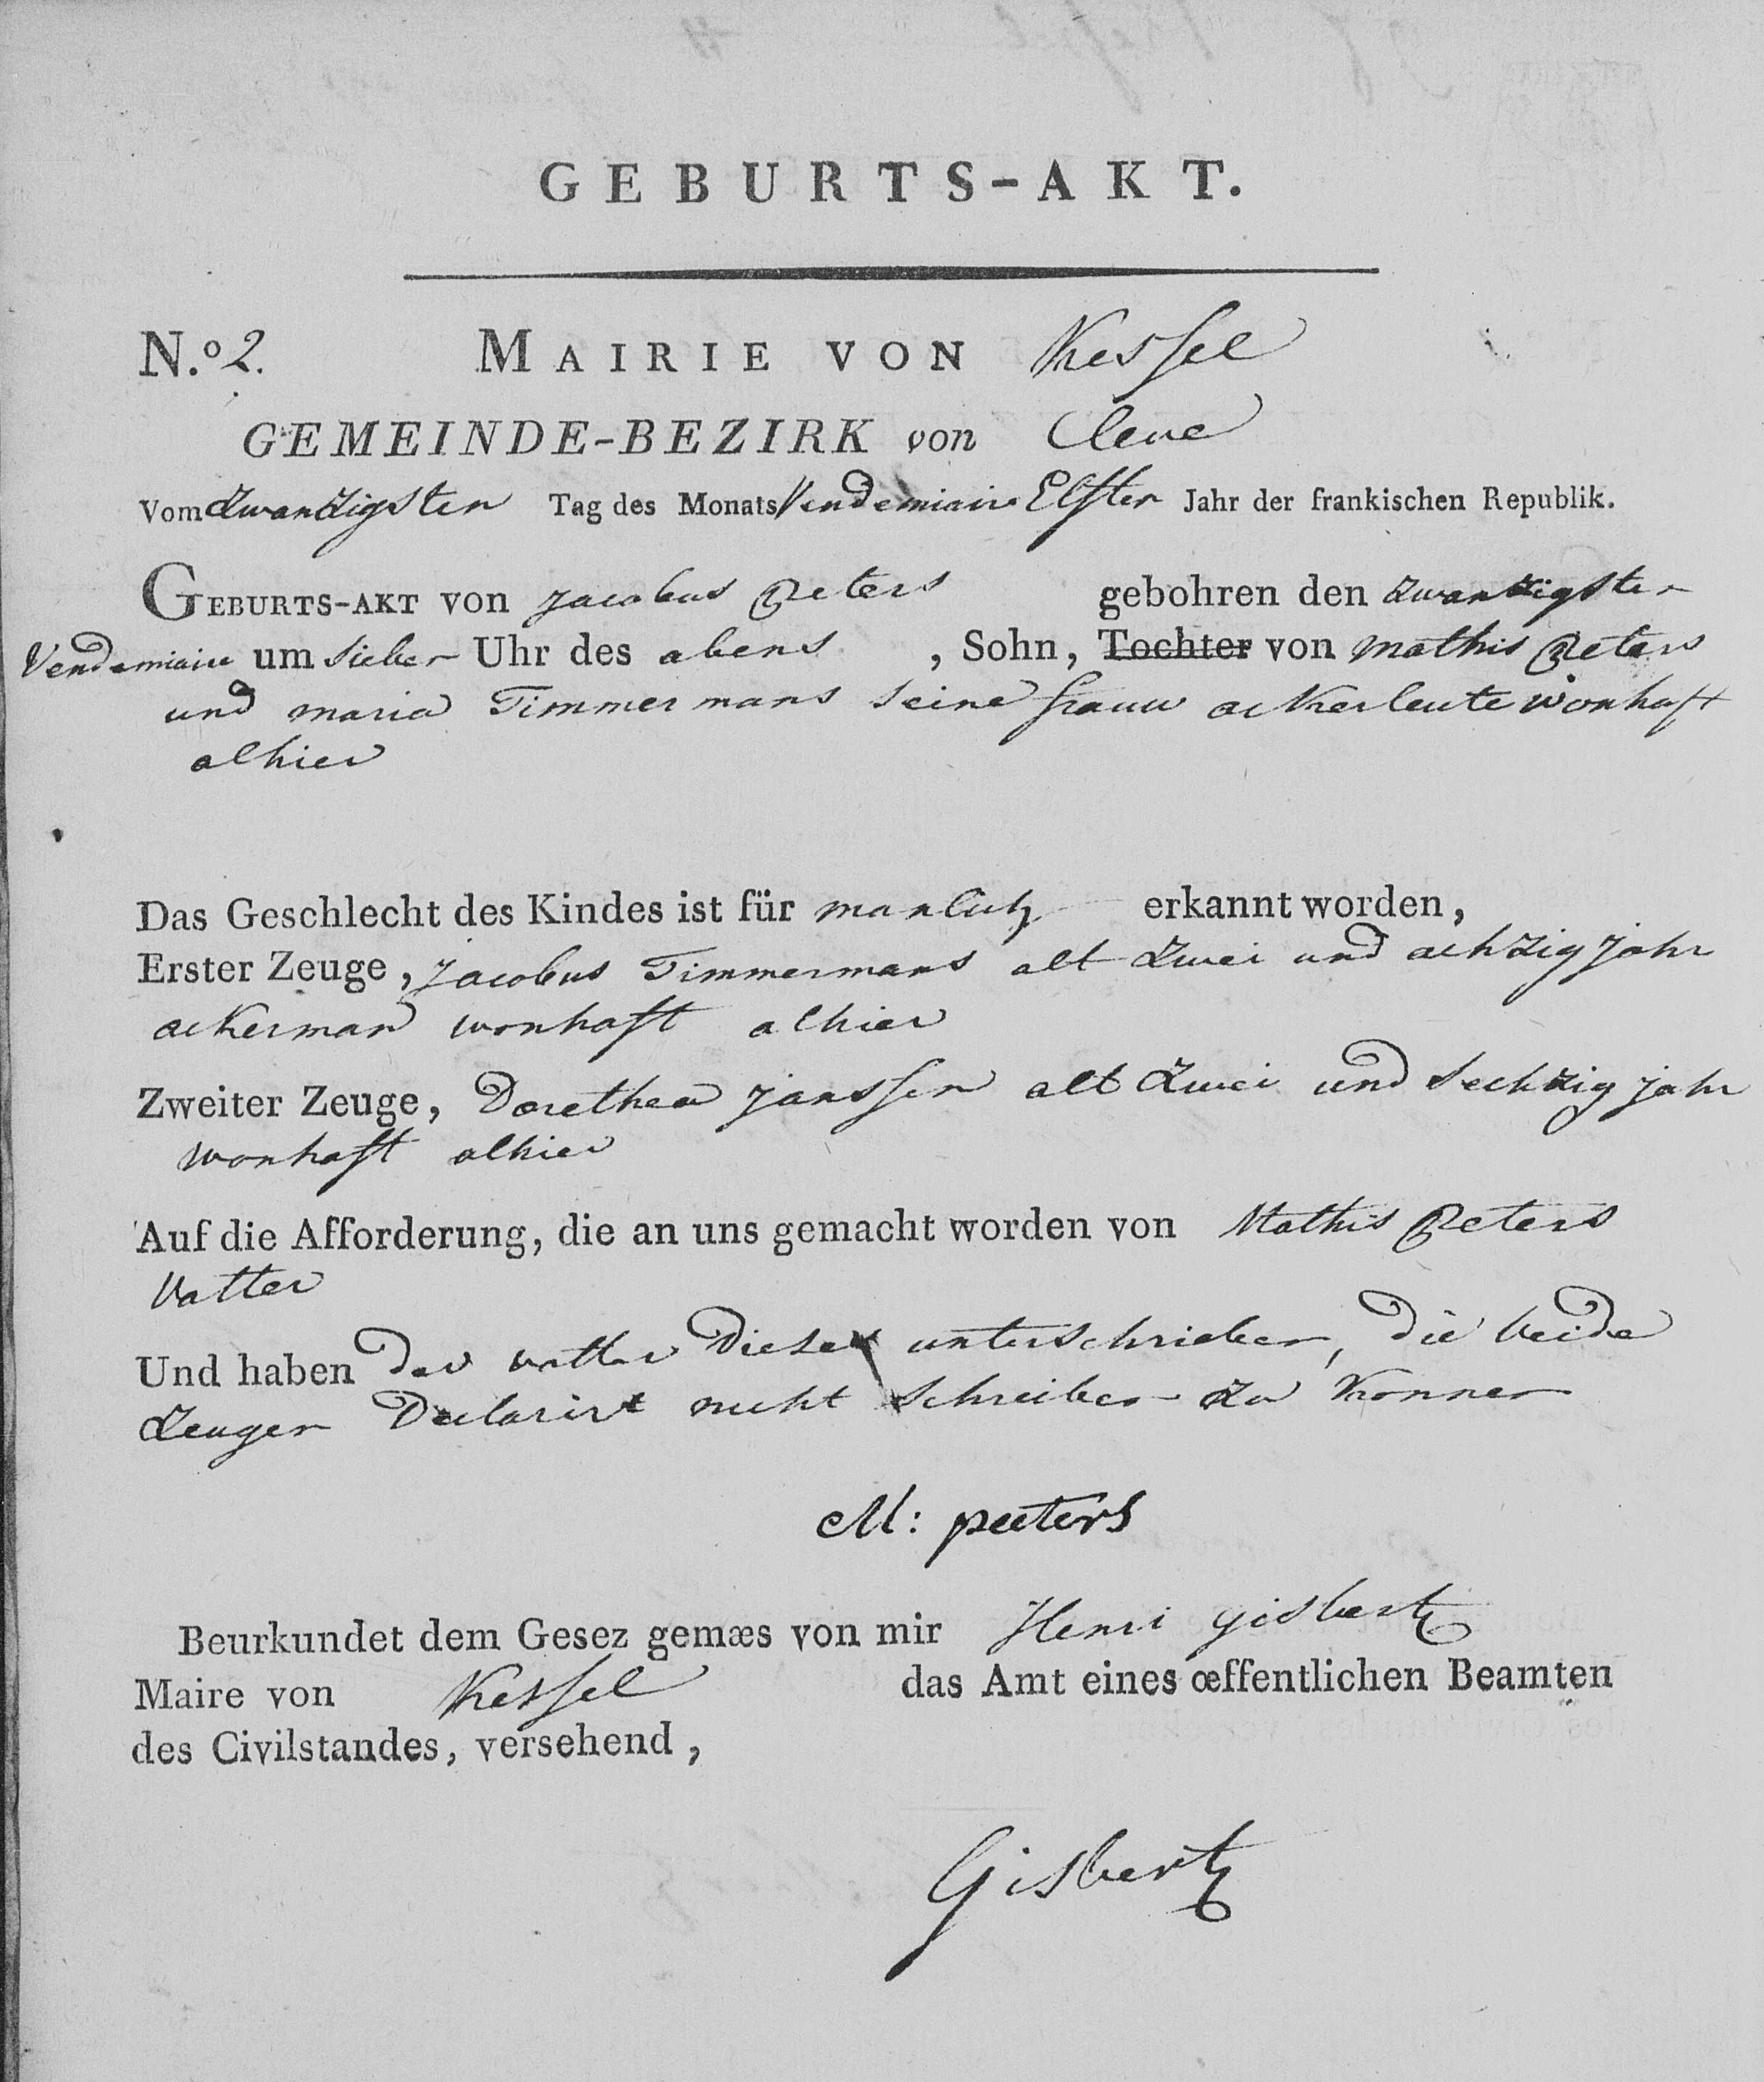 GEBURTS-AKT.
N.º 2. MAIRIE VON Kessel
GEMEINDE-BEZIRK von Cleve
Vom zwanzigsten Tag des Monats Vendemiaire Elften Jahr der frankischen Republik.
GEBURTS-AKT von jacobus Peters gebohren den zwanzigsten
Vendemiaire um sieben Uhr des abens , Sohn, Tochter von mathis Peters
und maria Timmermans seine frauw ackerleute wonhaft
alhier
Das Geschlecht des Kindes ist für manlich erkannt worden,
Erster Zeuge, jacobus Timmermans alt zwei und achzig jahr
ackerman wonhaft alhier
Zweiter Zeuge, Dorethea janssen alt zwei und sechzig jahr
wonhaft alhier
Auf die Afforderung, die an uns gemacht worden von Mathis Peters
Vatter
Und haben der vatter Diese unterschrieben, die beide
zeugen Declarirt nicht schreiben zu konnen
M: peeters
Beurkundet dem Gesez gemæs von mir Henri gisbertz
Maire von Kessel das Amt eines œffentlichen Beamten
des Civilstandes, versehend,
Gisbertz